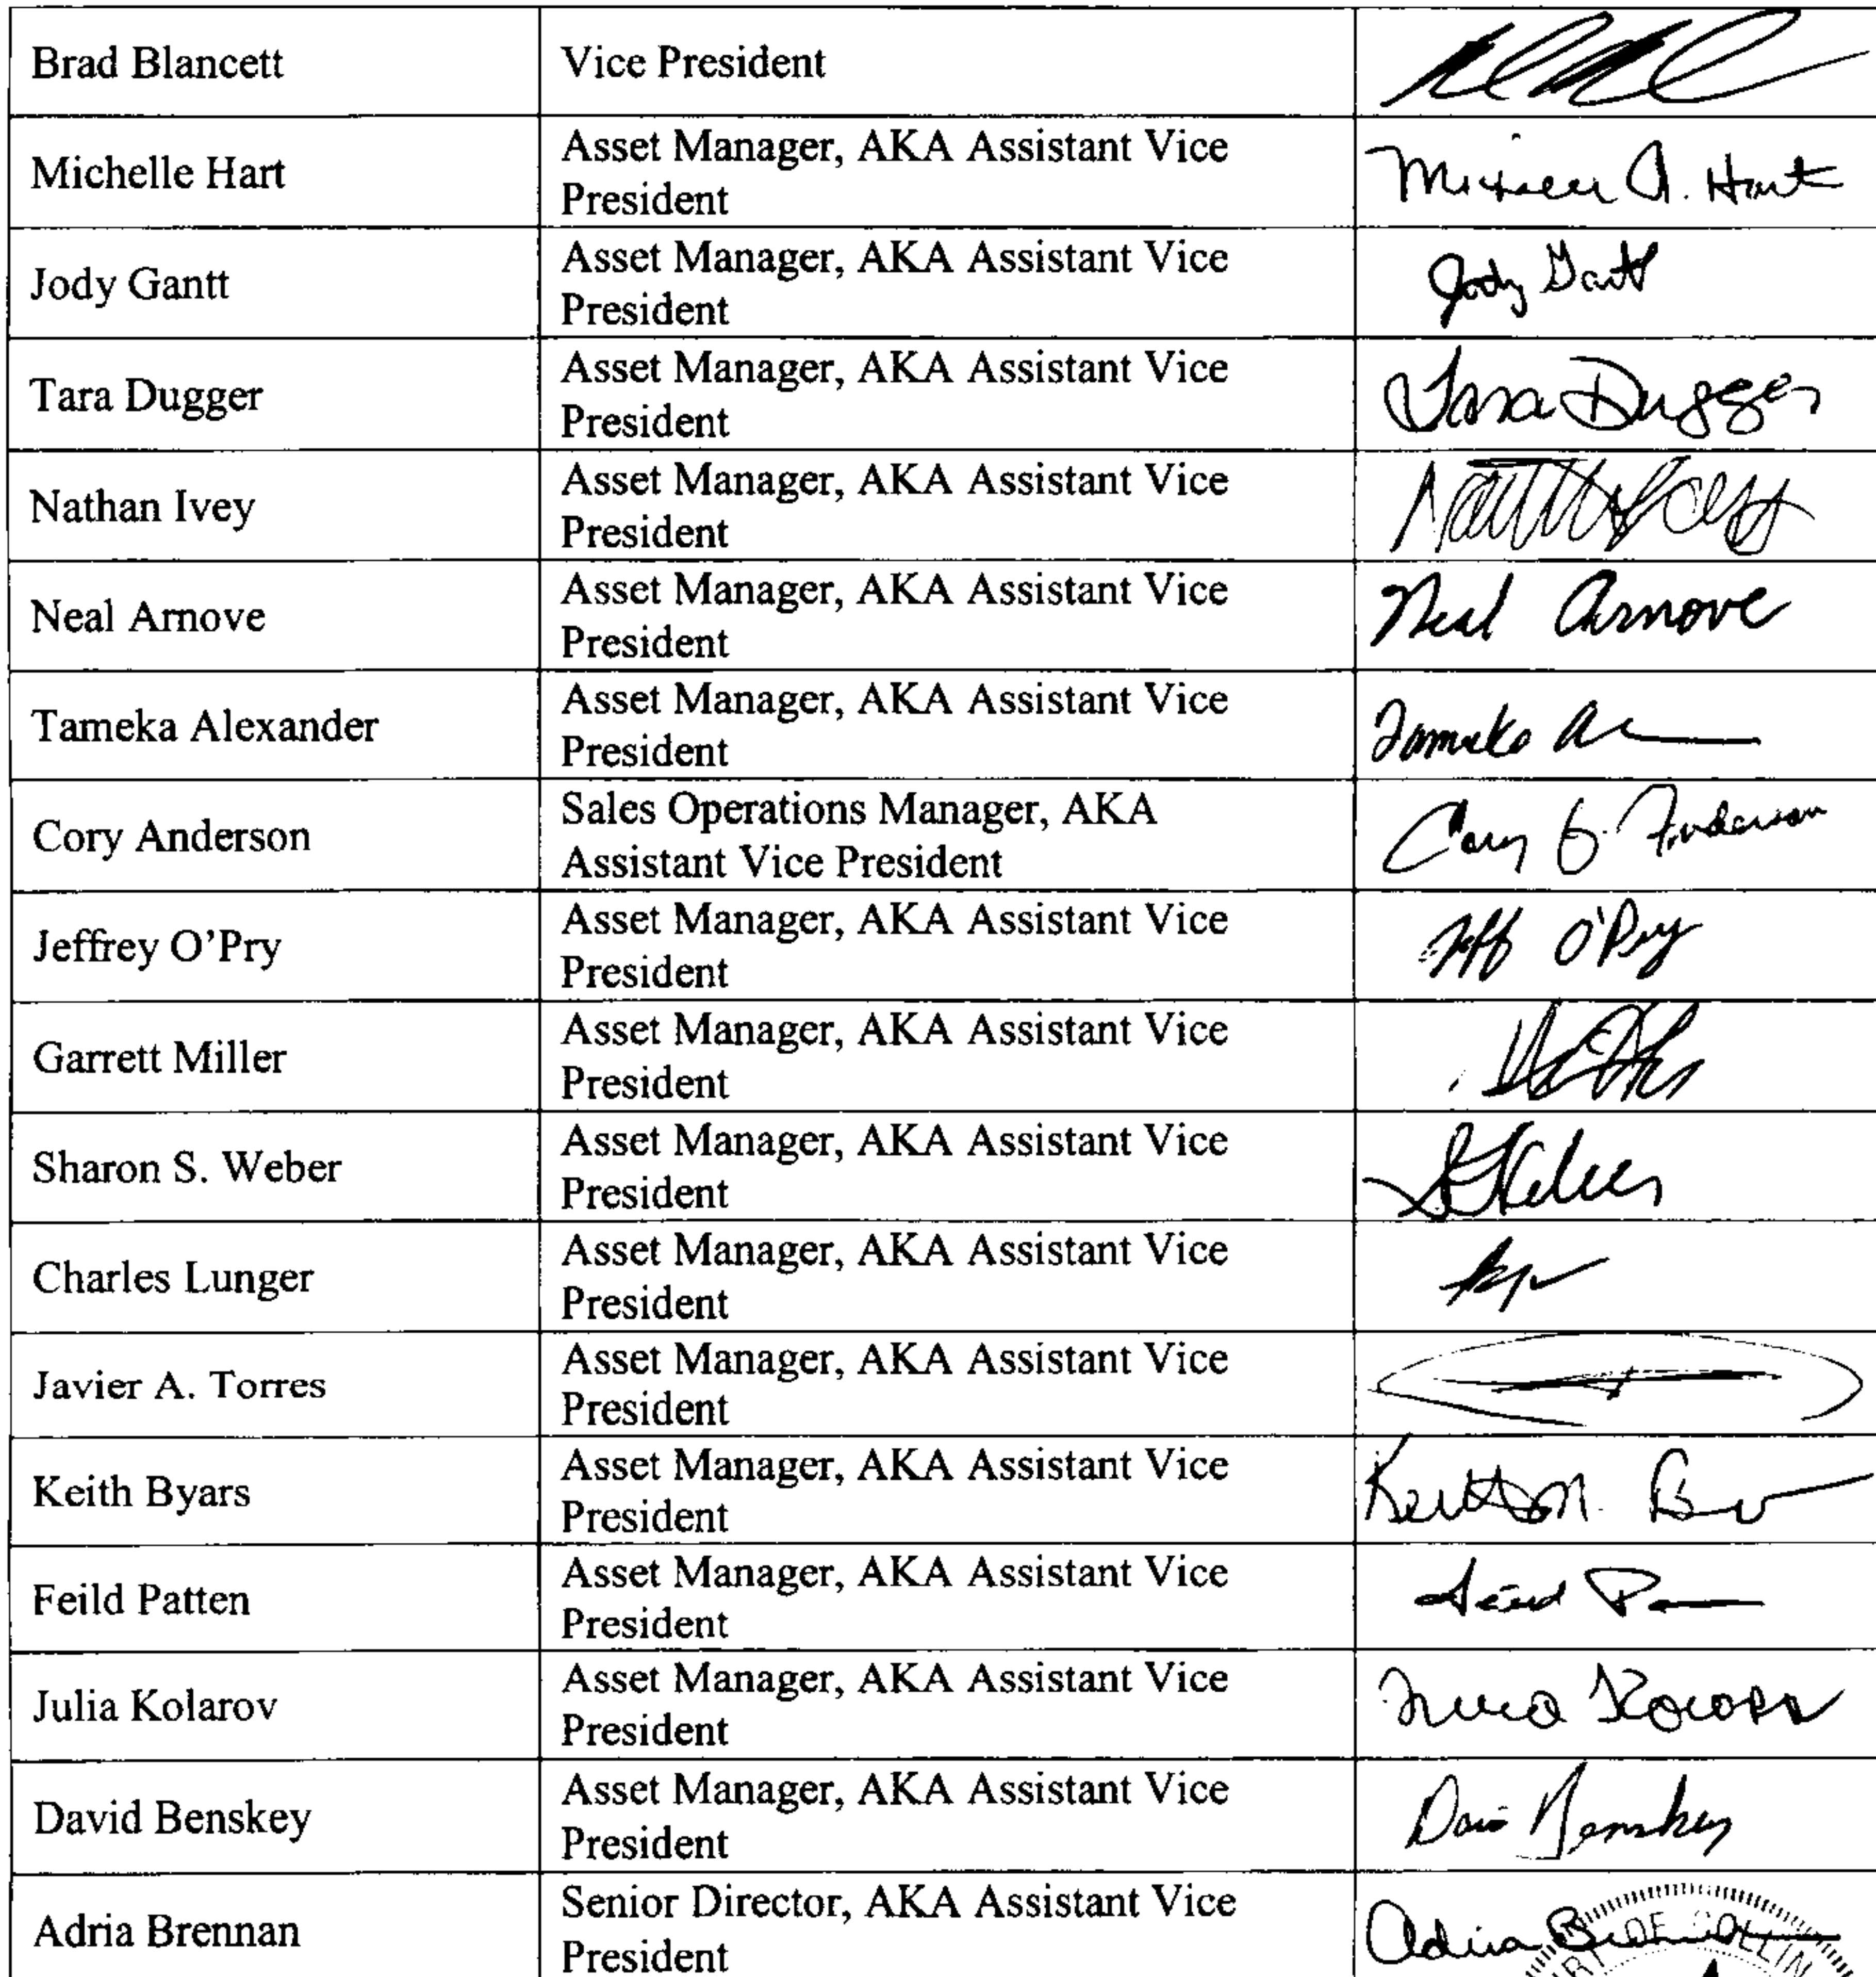 Brad Blancett Vice President
Michelle Hart Asset Manager, AKA Assistant Vice
President
Michelle A. Hart
Jody Gantt Asset Manager, AKA Assistant Vice
President
Jody Gantt
Tara Dugger Asset Manager, AKA Assistant Vice
President
Tara Dugger
Nathan Ivey Asset Manager, AKA Assistant Vice
President
Neal Arnove Asset Manager, AKA Assistant Vice
President
Neal Arnove
Tameka Alexander Asset Manager, AKA Assistant Vice
President
Tameka
Cory Anderson Sales Operations Manager, AKA
Assistant Vice President
Cory Anderson
Jeffrey O’Pry Asset Manager, AKA Assistant Vice
President
Jeff O'Pry
Garrett Miller Asset Manager, AKA Assistant Vice
President
Sharon S. Weber Asset Manager, AKA Assistant Vice
President
Charles Lunger Asset Manager, AKA Assistant Vice
President
Javier A. Torres Asset Manager, AKA Assistant Vice
President
Keith Byars Asset Manager, AKA Assistant Vice
President
Feild Patten Asset Manager, AKA Assistant Vice
President
Julia Kolarov Asset Manager, AKA Assistant Vice
President
David Benskey Asset Manager, AKA Assistant Vice
President
Benskey
Adria Brennan Senior Director, AKA Assistant Vice
President
Adria
OF COLLIN